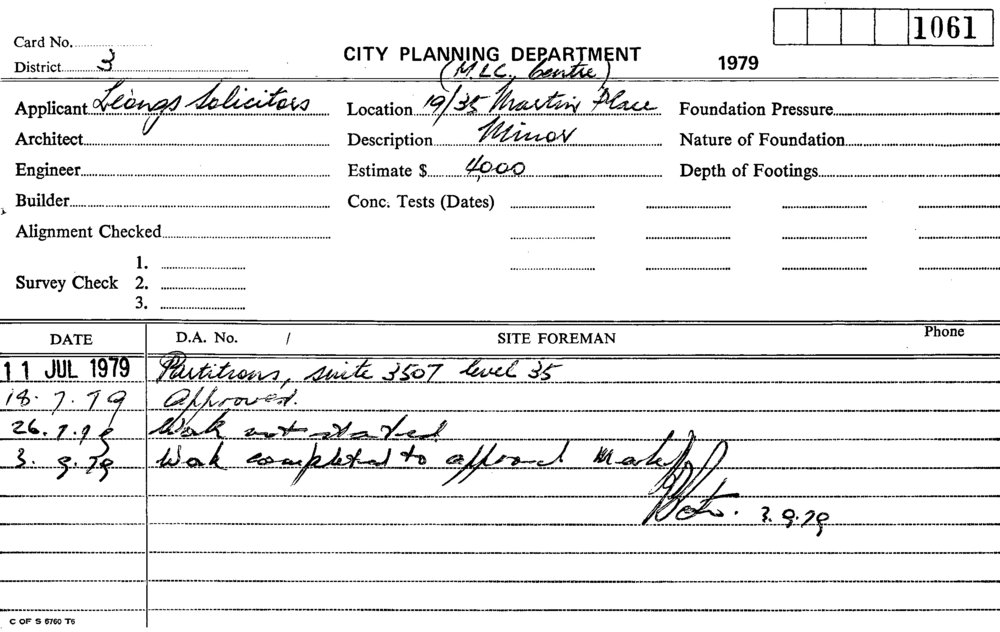 1061
Card No.
CITY PLANNING DEPARTMENT 1979
District 3
(M.L.C. Centre)
Applicant Leongs Solicitors Location 19/35 Martin Place Foundation Pressure
Architect Description Minor Nature of Foundation
Engineer Estimate $ 4,000 Depth of Footings
Builder Conc. Tests (Dates)
Alignment Checked
1.
Survey Check 2.
3.
DATE D.A. No. / SITE FOREMAN Phone
11 JUL 1979 Partitions, suite 3507 level 35
18.7.79 Approved.
26.7.79 Work not started
3.9.79 Work completed to approval
3.9.79
C OF S 5760 T6